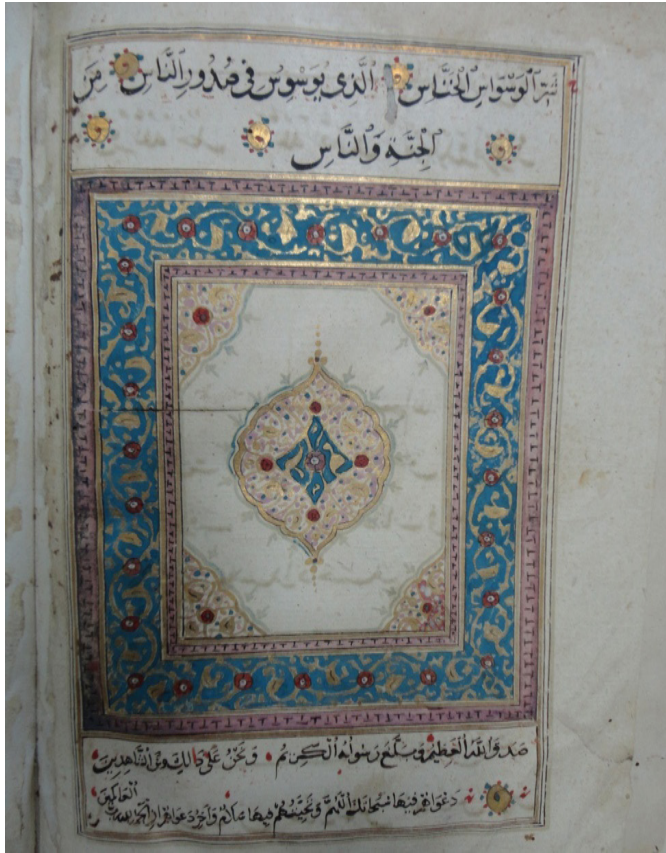 شَرِّ ٱلْوَسْوَاسِ الْخَنَّاسِ الَّذِى يُوَسْوِسُ فِى صُدُورِ النَّاسِ مِنَ
الْجِنَّةِ وَالنَّاسِ
صَدَقَ اللّٰهُ الْعَظِيمُ وَبَلَّغَ رَسُولُهُ الْكَرِيمُ وَنَحْنُ عَلَى ذَالِكَ مِنَ الشَّاهِدِينَ
دَعْوَاهُمْ فِيهَا سُبْحَانَكَ اللّٰهُمَّ وَتَحِيَّتُهُمْ فِيهَا سَلَامٌ وَآخِرُ دَعْوَاهُمْ أَنِ الْحَمْدُ لِلّٰهِ رَبِّ
الْعَالَمِينَ